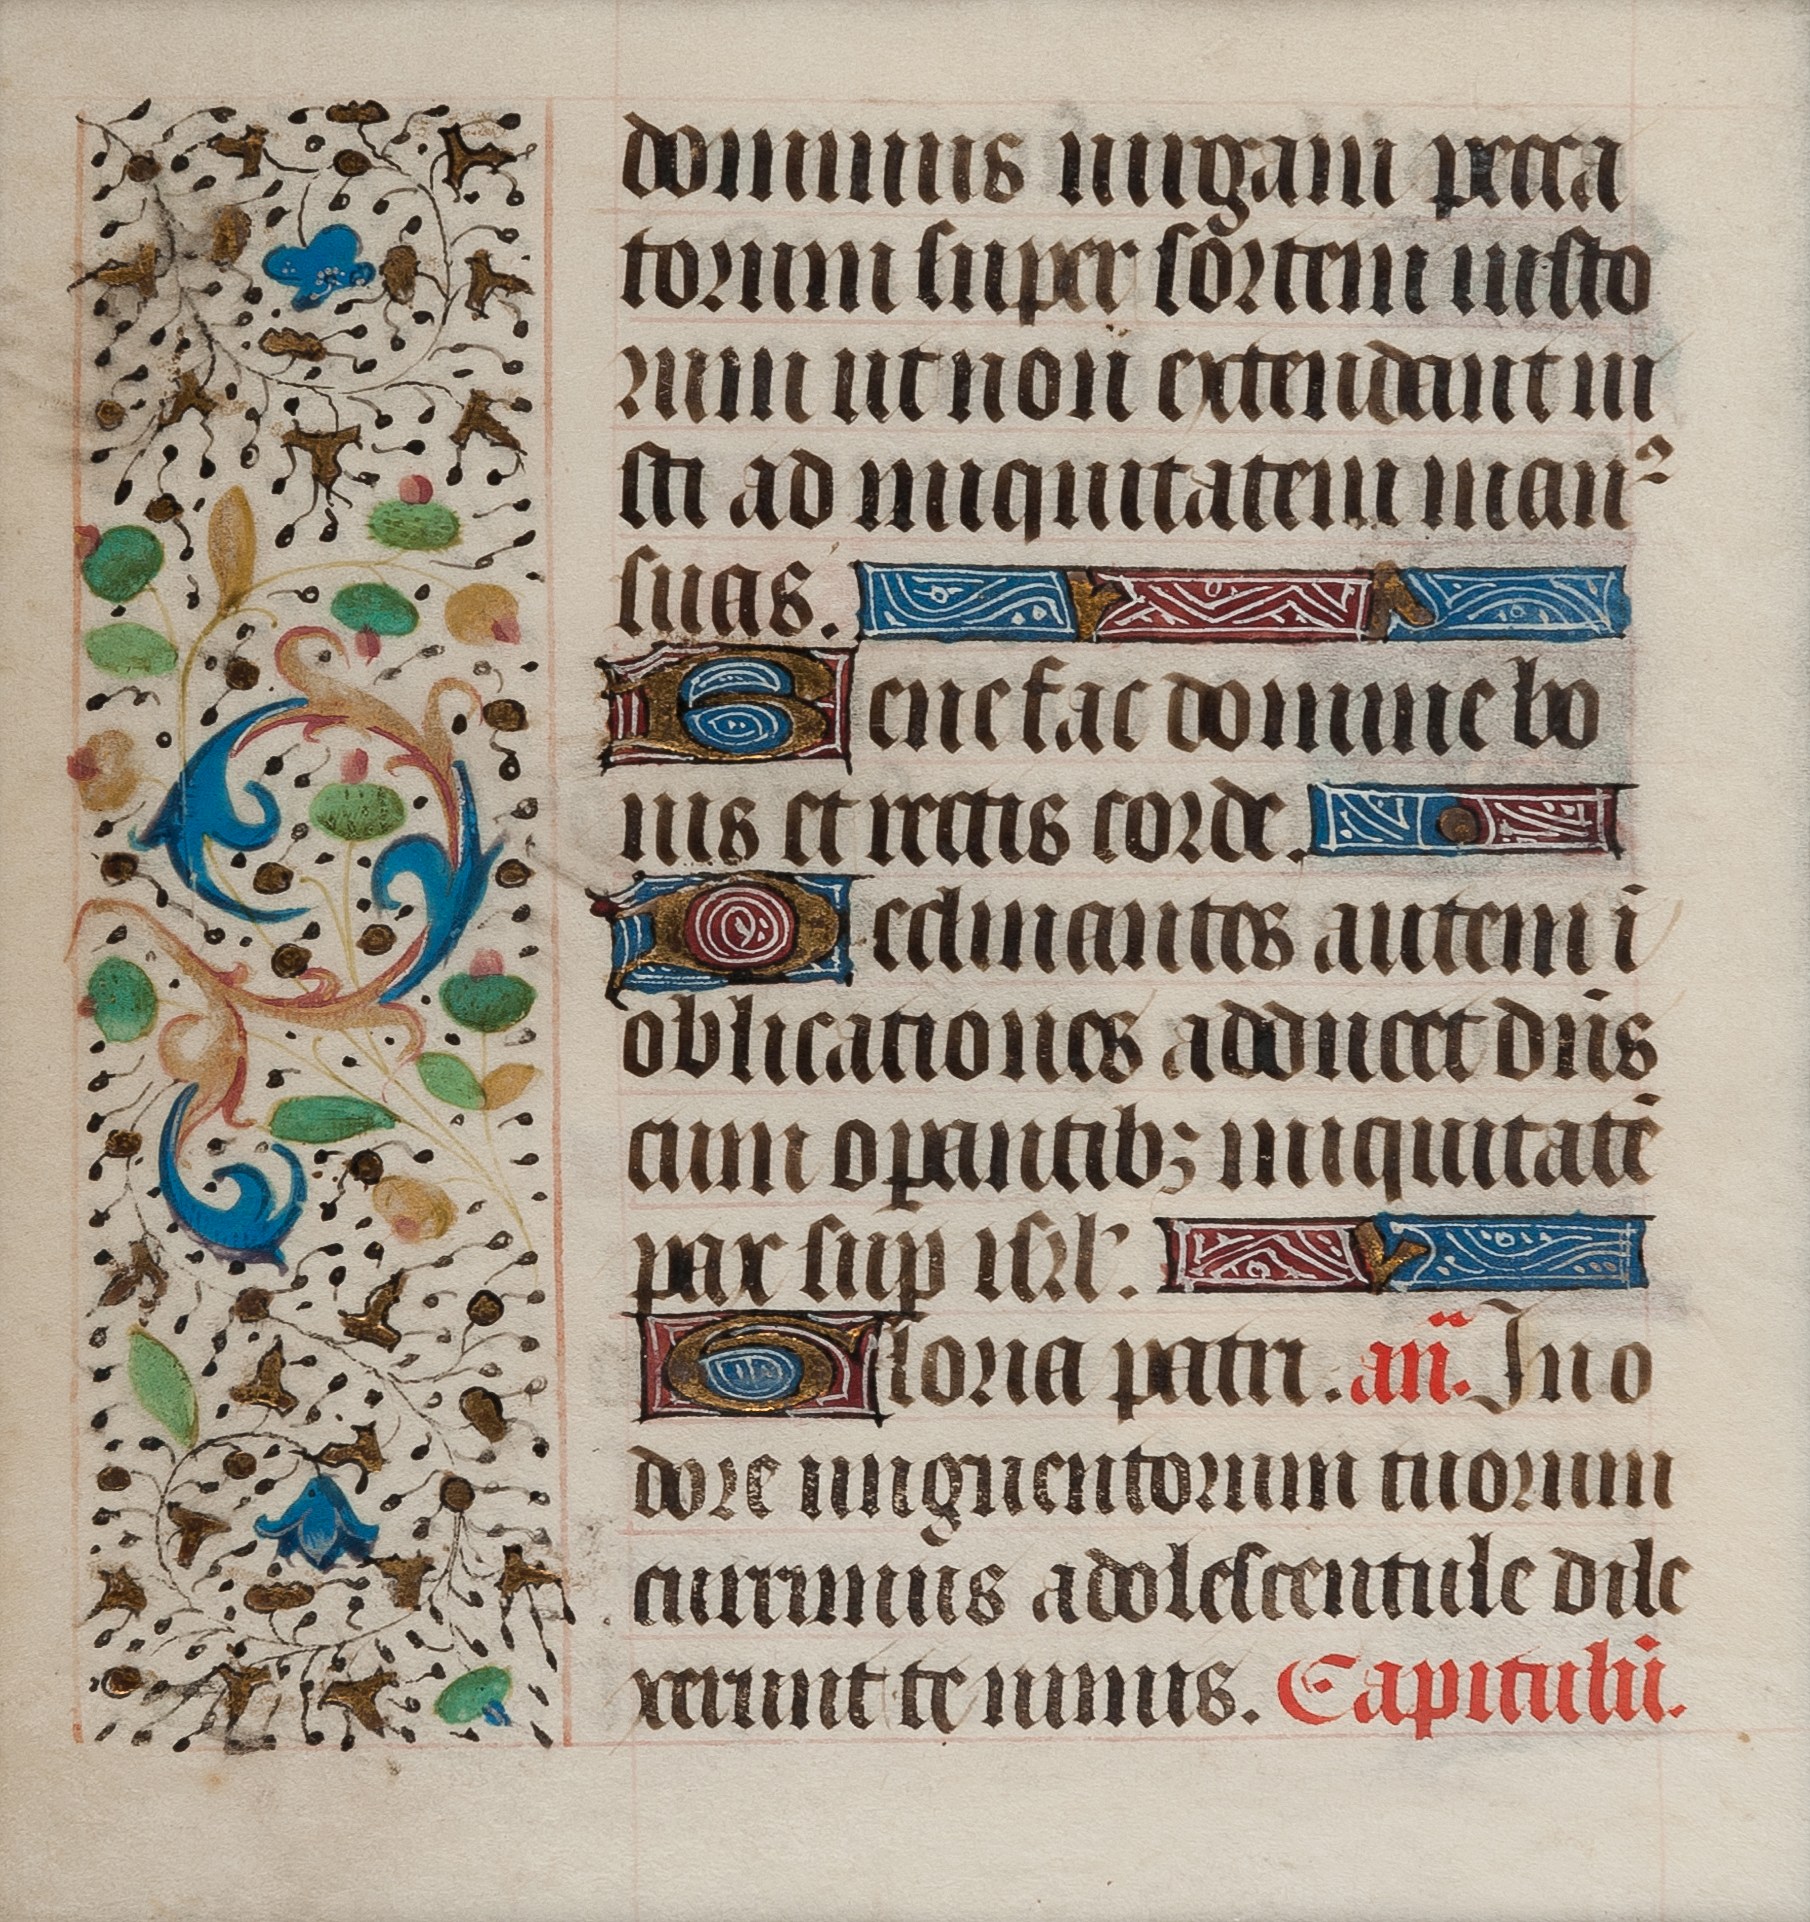 dominus uirgam pecca
torum super sortem iusto
rum ut non extendant iu
sti ad iniquitatem man²
suas.
Benefac domine bo
nis et rectis corde.
Declinantes autem ī
oblicationes adducet dn̄s
cum oꝑantibꝫ iniquitatē
pax suꝑ isrl'.
Gloria patri. an̄. In o
dore unguentorum tuorum
currimus adolescentule dile
xerunt te nimis. Capitulū.